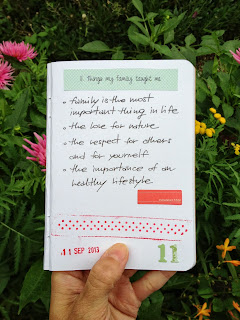 5 things my family taught me
family is the most
important thing in life
the love for nature
the respect for others
and for yourself
the importance of an
healthy lifestyle
11 SEP 2013
11